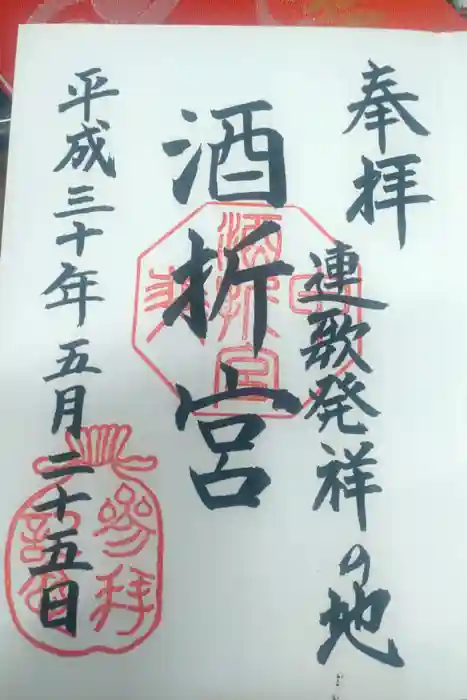 奉拝
連歌発祥の地
酒折宮
平成三十年五月二十五日